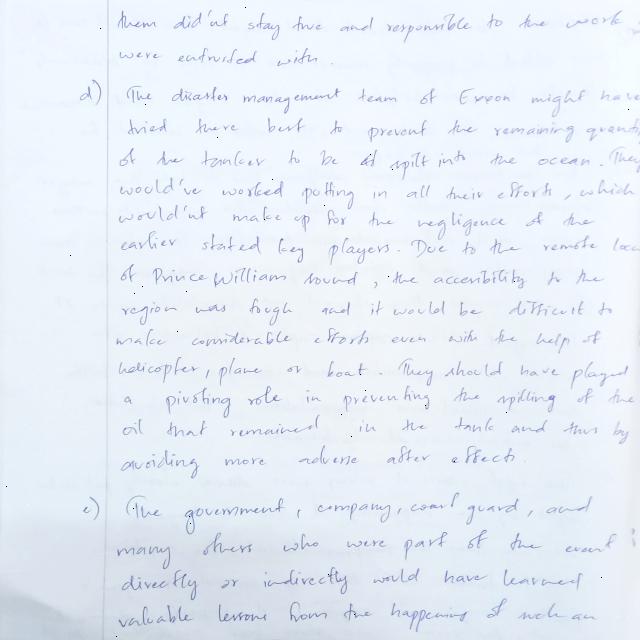 them did'nt stay true and responsible to the work
were entrusted with.
d) The disaster management team of Exxon might have
tried there best to prevent the remaining
of the tanker to be spilt into the ocean. They
would've worked putting in all their efforts, which
would'nt make up for the negligence of the
earlier stated key players. Due to the remote
of Prince William sound, the accessibility to the
region was tough and it would be difficult to
make considerable efforts even with the help of
helicopter, plane or boat. They should have played
a pivoting role in preventing the spilling of the
oil that remained in the tank and thus by
avoiding more adverse after effects.
e) The government, company, coast guard, and
many others who were part of the event
directly or indirectly would have learned
valuable lessons from the happening of such an